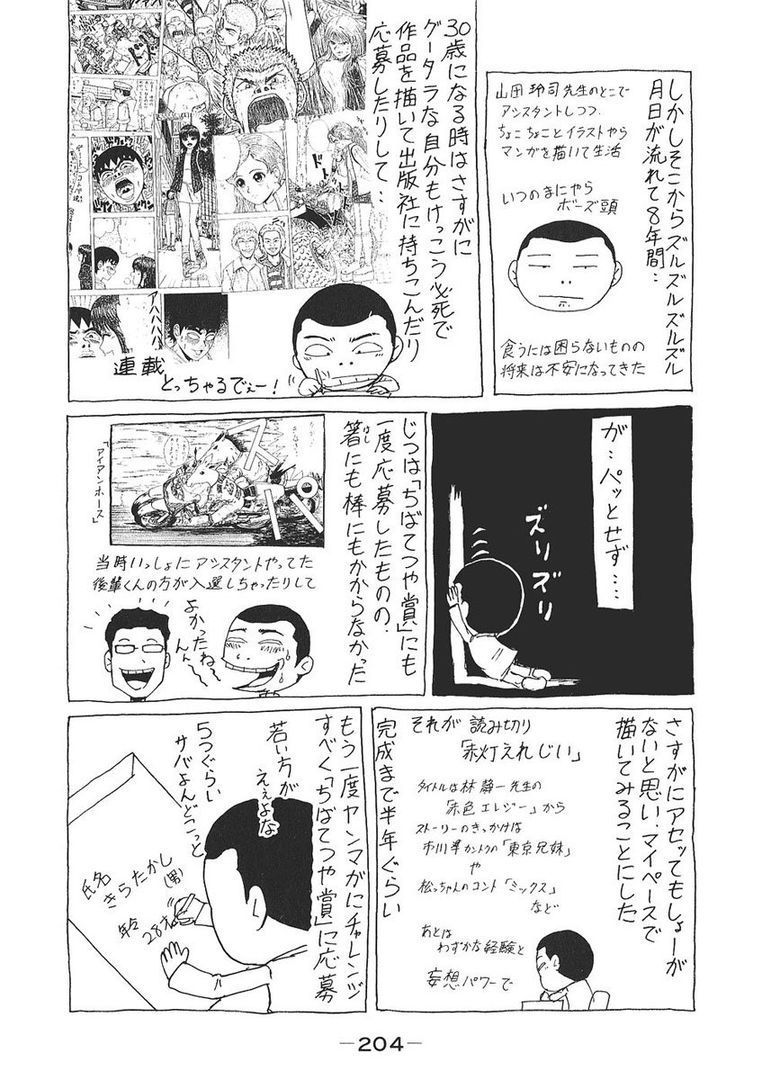 しかしそこからズルズルズルズル
月日が流れて8年間…
山田玲司先生のとこで
アシスタントしつつ
ちょこちょことイラストやら
マンガを描いて生活
いつのまにやら
ボーズ頭
食うには困らないものの
将来は不安になってきた
30歳になる時はさすがに
グータラな自分もけっこう必死で
作品を描いて出版社に持ちこんだり
応募したりして…
アハハハハ
連載
とっちゃるでぇー!
が…パッとせず…
ズリズリ
じつは「ちばてつや賞」にも
一度応募したものの、
箸にも棒にもかからなかった
はし
「アイアンホース」
スパ
当時いっしょにアシスタントやってた
後輩くんの方が入選しちゃったりして
よかったねー
さすがにアセッてもしょーが
ないと思い、マイペースで
描いてみることにした
それが読み切り
「赤灯えれじい」
タイトルは林静一先生の
「赤色エレジー」から
ストーリーのきっかけは
市川準カントクの「東京兄妹」
や
松っちゃんのコント「ミックス」
など
あとは
わずかな経験と
妄想パワーで
完成まで半年ぐらい
もう一度ヤンマガにチャレンジ
すべく「ちばてつや賞」に応募
若い方が
ええよな
5つぐらい
サバよんどこっと
氏名
きらたかし
(男)
年令
28才
—204—